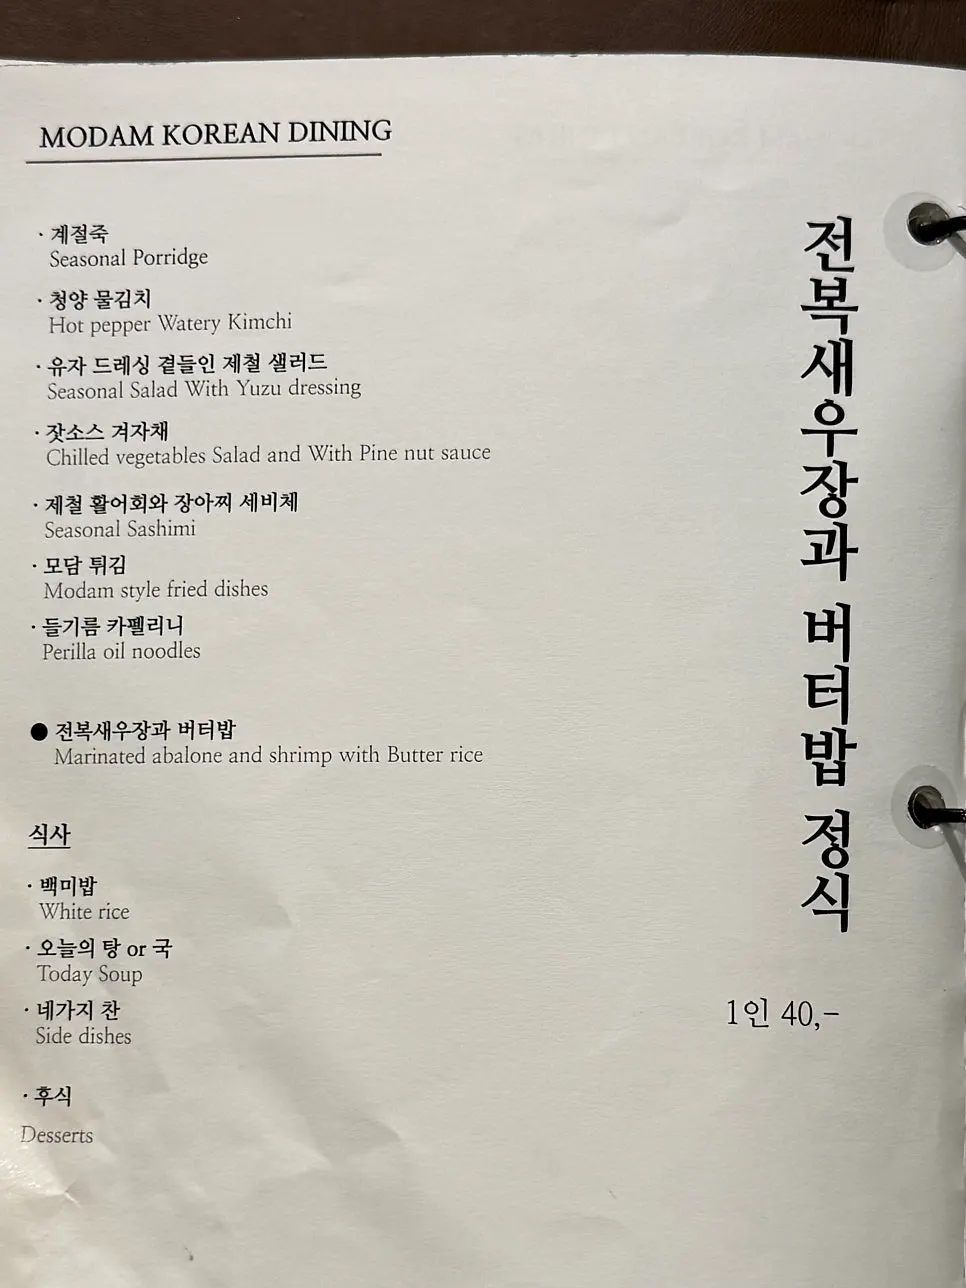 MODAM KOREAN DINING
· 계절죽
Seasonal Porridge
· 청양 물김치
Hot pepper Watery Kimchi
· 유자 드레싱 곁들인 제철 샐러드
Seasonal Salad With Yuzu dressing
· 잣소스 겨자채
Chilled vegetables Salad and With Pine nut sauce
· 제철 활어회와 장아찌 세비체
Seasonal Sashimi
· 모담 튀김
Modam style fried dishes
· 들기름 카펠리니
Perilla oil noodles
● 전복새우장과 버터밥
Marinated abalone and shrimp with Butter rice
식사
· 백미밥
White rice
· 오늘의 탕 or 국
Today Soup
· 네가지 찬
Side dishes
· 후식
Desserts
전복새우장과 버터밥 정식
1인 40,-